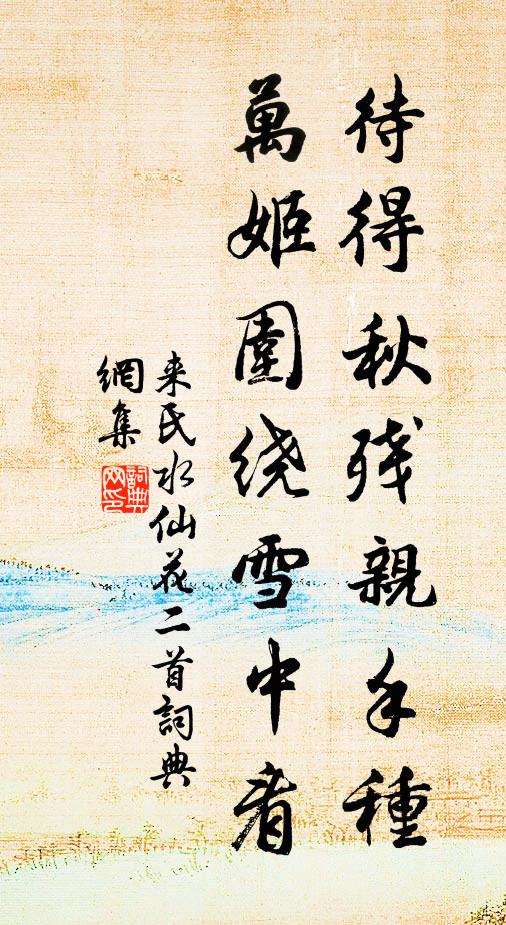 待得秋残親手種
萬姬圍绕雪中看
来氏水仙花二首詞典
網集
詞典
网印